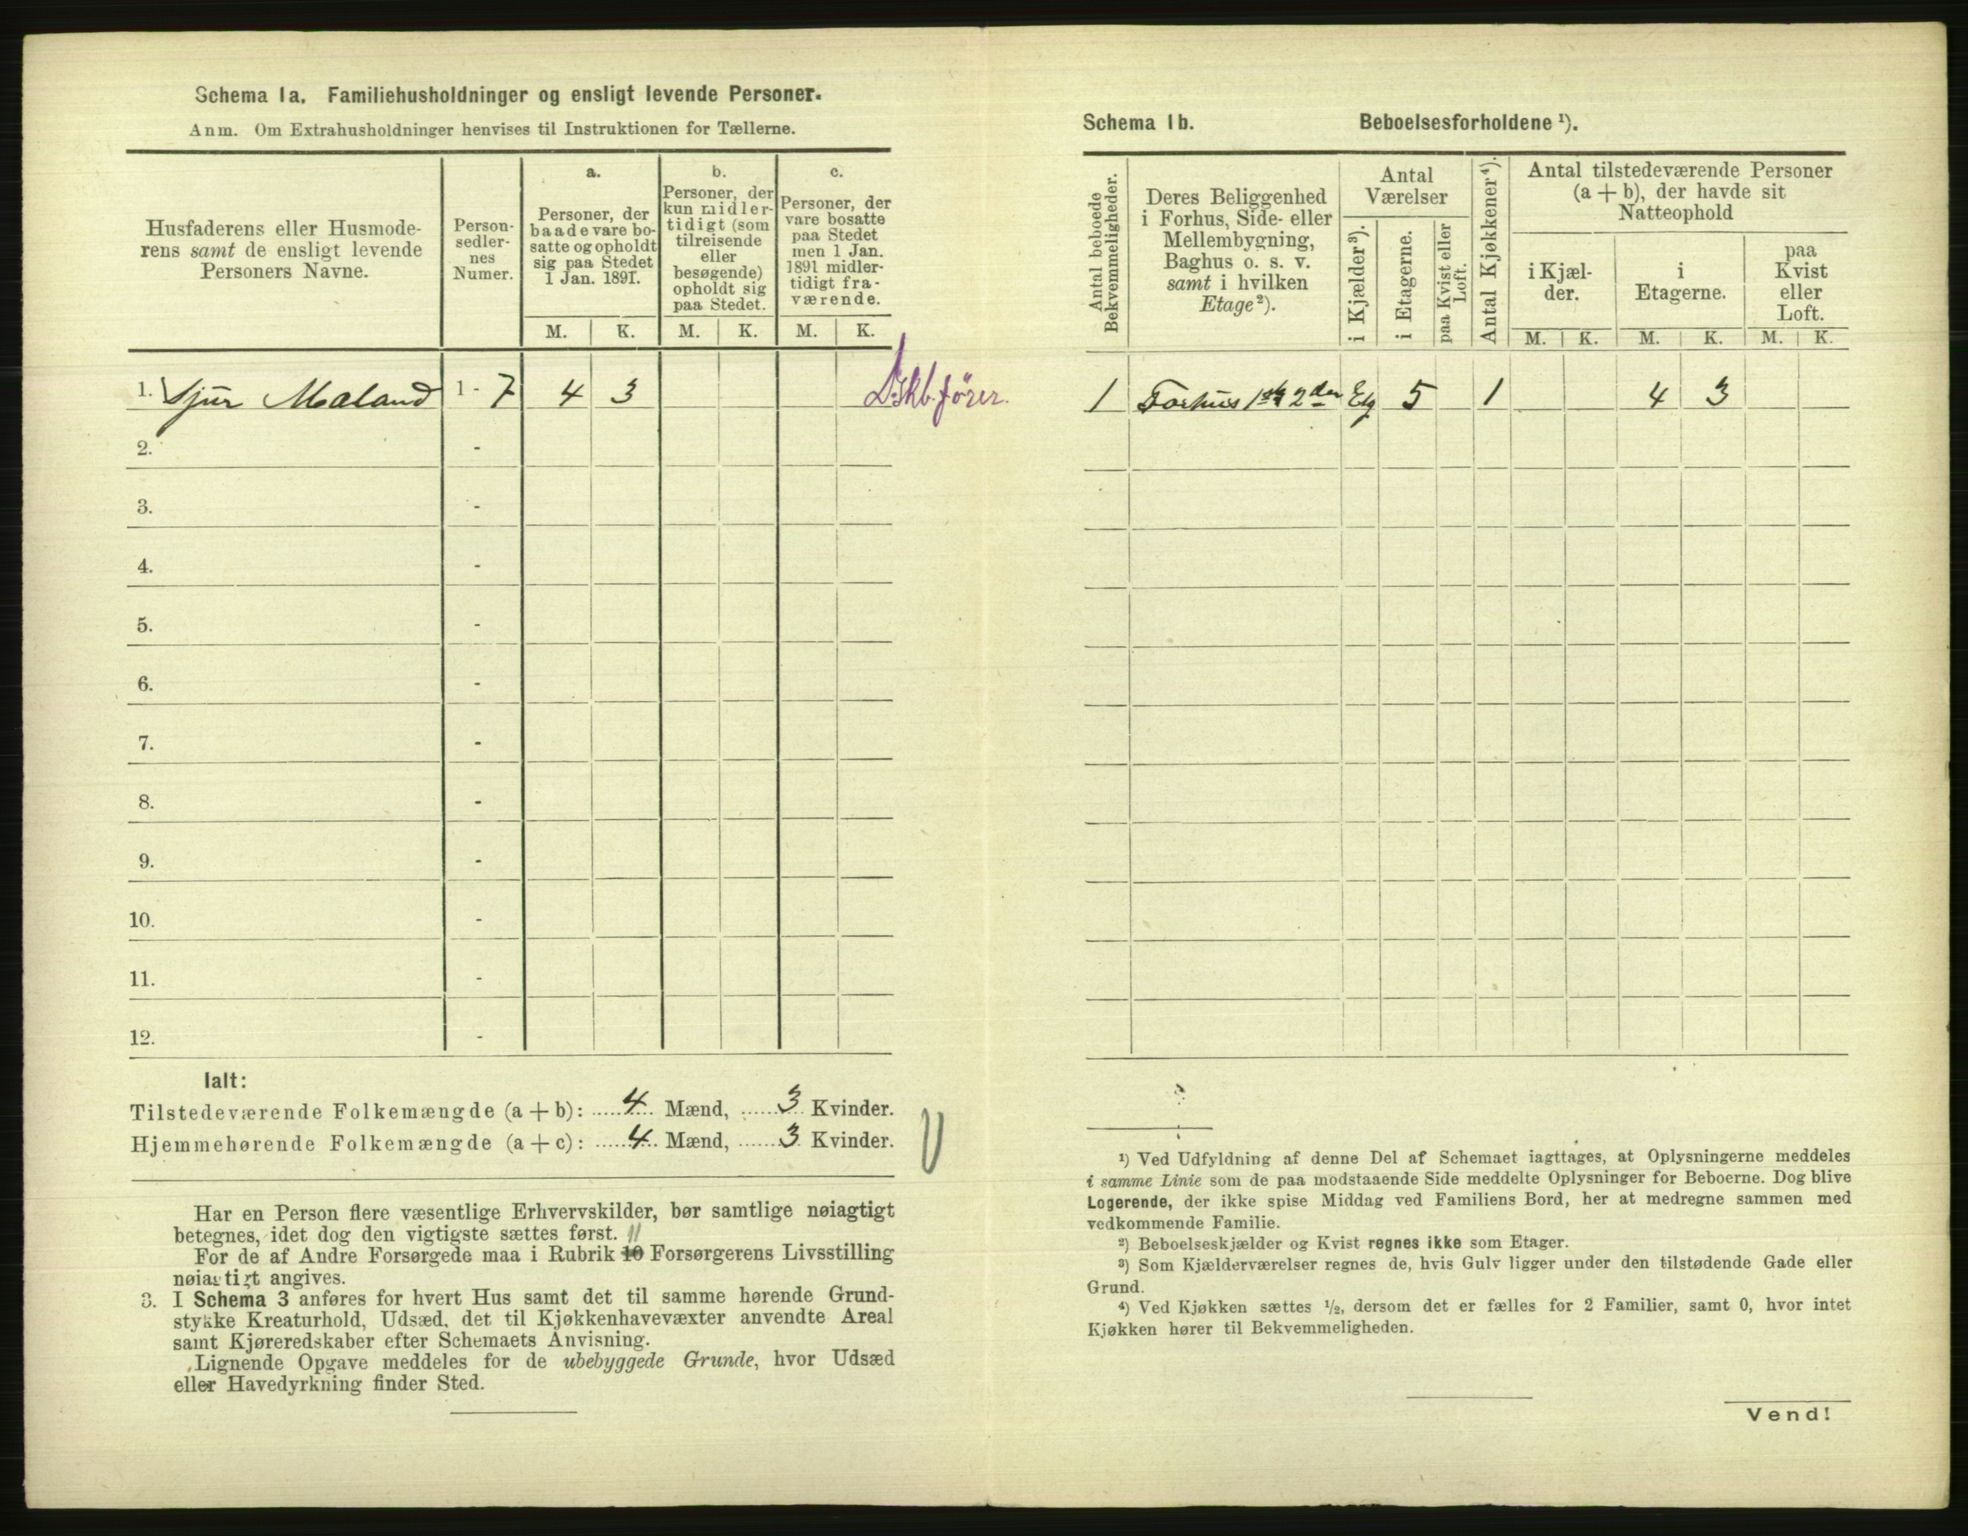 Schema 1a. Familiehusholdninger og ensligt levende Personer.
Anm. Om Extrahusholdninger henvises til Instruktionen for Tællerne.
Husfaderens eller Husmode-
rens samt de ensligt levende
Personers Navne.
Person-
sedler-
nes
Numer.
a.
Personer, der
baade vare bo-
satte og opholdt
sig paa Stedet
1 Jan. 1891.
b.
Personer, der
kun midler-
tidigt (som
tilreisende
eller
besøgende)
opholdt sig
paa Stedet.
c.
Personer, der
vare bosatte
paa Stedet
men 1 Jan.
1891 midler-
tidigt fra-
værende.
M. K. M. K. M. K.
1. Sjur Mæland 1 - 7 4 3
fører.
2. -
3. -
4. -
5. -
6. -
7. -
8. -
9. -
10. -
11. -
12. -
Ialt:
Tilstedeværende Folkemængde (a + b): 4 Mænd, 3 Kvinder.
Hjemmehørende Folkemængde (a + c): 4 Mænd, 3 Kvinder.
Har en Person flere væsentlige Erhvervskilder, bør samtlige nøiagtigt
betegnes, idet dog den vigtigste sættes først. 11
For de af Andre Forsørgede maa i Rubrik 10 Forsørgerens Livsstilling
nøiagtigt angives.
3. I Schema 3 anføres for hvert Hus samt det til samme hørende Grund-
stykke Kreaturhold, Udsæd, det til Kjøkkenhavevæxter anvendte Areal
samt Kjøreredskaber efter Schemaets Anvisning.
Lignende Opgave meddeles for de ubebyggede Grunde, hvor Udsæd
eller Havedyrkning finder Sted.
Schema 1b. Beboelsesforholdene ¹).
Antal beboede
Bekvemmeligheder.
Deres Beliggenhed
i Forhus, Side- eller
Mellembygning,
Baghus o. s. v.
samt i hvilken
Etage ²).
Antal
Værelser
i Kjælder ³).
i Etagerne.
paa Kvist eller
Loft.
Antal Kjøkkener ⁴).
Antal tilstedeværende Personer
(a + b), der havde sit
Natteophold
i Kjæl-
der.
i
Etagerne.
paa
Kvist
eller
Loft.
M. K. M. K. M. K.
1 Forhus 1ste 2den Etg 5 1 4 3
¹) Ved Udfyldning af denne Del af Schemaet iagttages, at Oplysningerne meddeles
i samme Linie som de paa modstaaende Side meddelte Oplysninger for Beboerne. Dog blive
Logerende, der ikke spise Middag ved Familiens Bord, her at medregne sammen med
vedkommende Familie.
²) Beboelseskjælder og Kvist regnes ikke som Etager.
³) Som Kjælderværelser regnes de, hvis Gulv ligger under den tilstødende Gade eller
Grund.
⁴) Ved Kjøkken sættes ½, dersom det er fælles for 2 Familier, samt 0, hvor intet
Kjøkken hører til Bekvemmeligheden.
Vend!